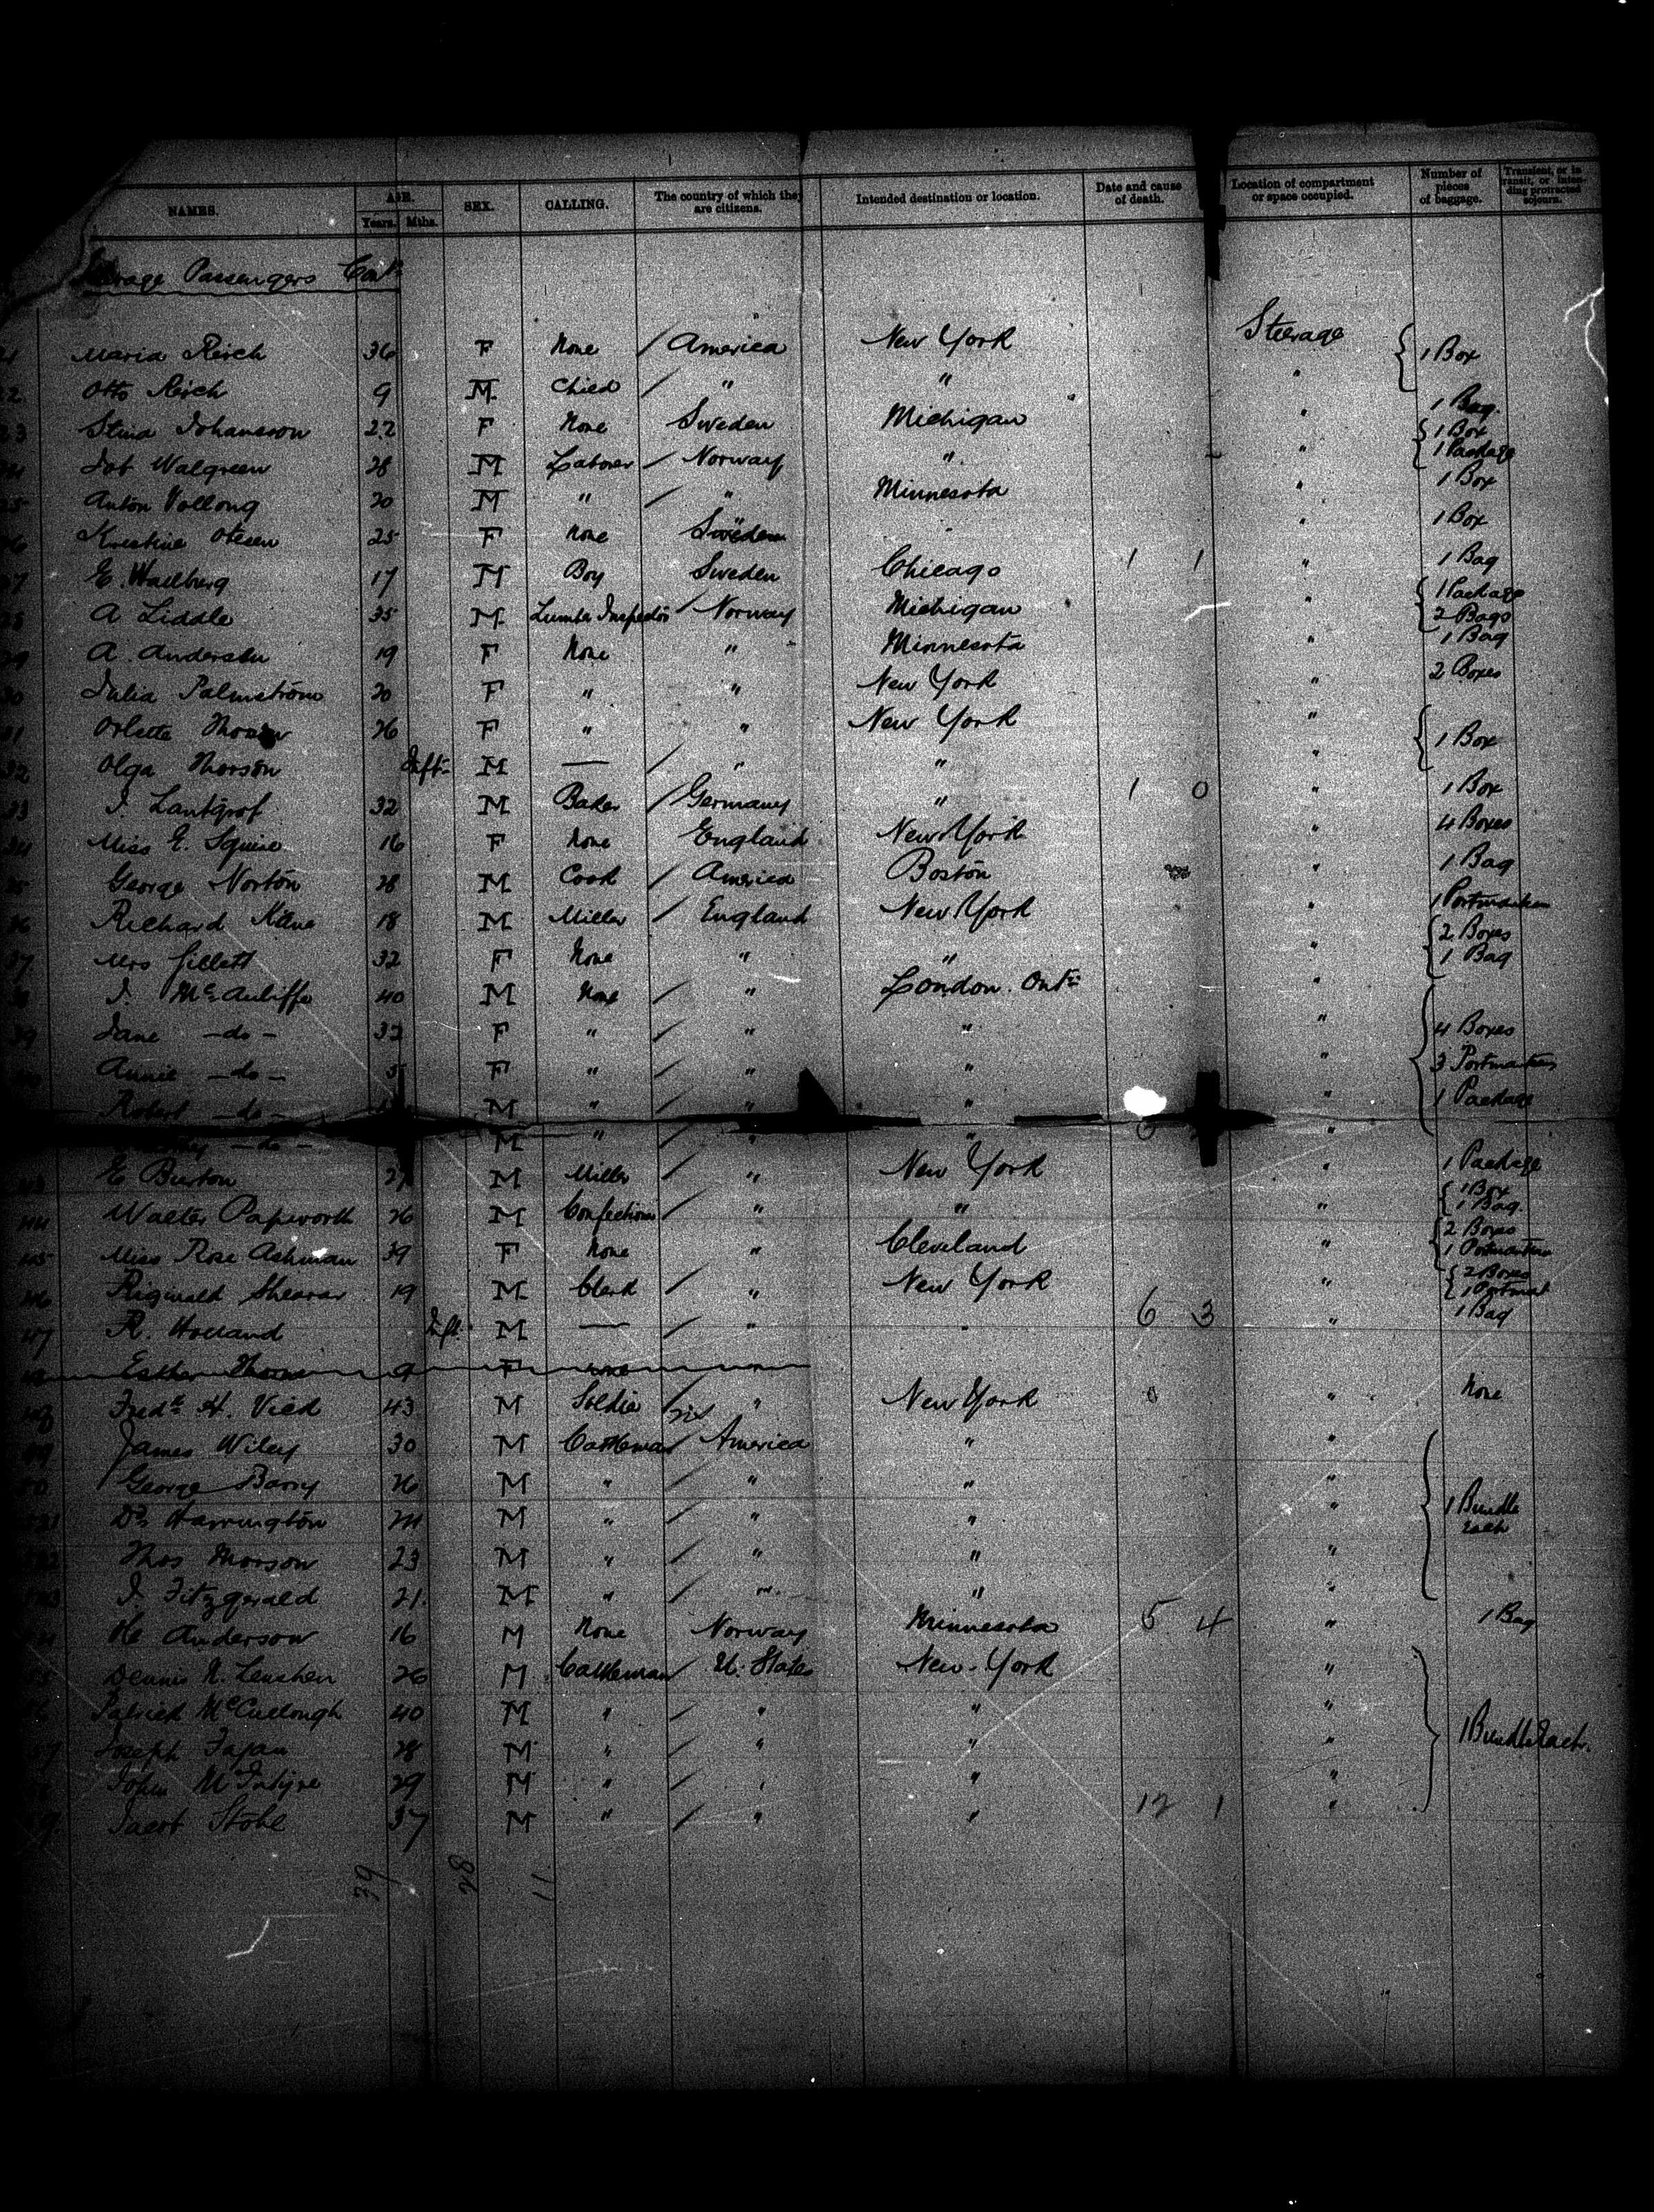 NAMES. AGE. Years. Mths. SEX. CALLING. The country of which they are citizens. Intended destination or location. Date and cause of death. Location of compartment or space occupied. Number of pieces of baggage. Transient, or in transit, or intending protracted sojourn.
Passengers Cont
Maria Reich 36 F None / America New York Steerage { 1 Box
22 Otto Reich 9 M Child / " " "
23 Stina Johansson 22 F None Sweden Michigan " 1 Bag
24 Walgreen 28 M Laborer / Norway " " { 1 Box 1 Package
25 Anton Vollong 20 M " / " Minnesota " 1 Box
26 Kristine Olesen 25 F None Sweden " " 1 Box
27 E. Wallberg 17 M Boy Sweden Chicago 1 1 " 1 Bag
A Liddle 35 M Lumber Inspector / Norway Michigan " { 1 Package 2 Bags
29 A. Andersen 19 F None " Minnesota " 1 Bag
30 Julia Palmström 20 F " " New York " 2 Boxes
31 Orlette 26 F " " New York " { 1 Box
32 Olga Thorson Inft M — / " " "
33 J. Lantgrof 32 M Baker / Germany " 1 0 " 1 Box
34 Miss E. Squire 16 F None England New York " 4 Boxes
35 George Norton 28 M Cook / America Boston " 1 Bag
36 Richard Kane 18 M Miller / England New York " 1 Portmanteau
37 Mrs Gillett 32 F None " " " { 2 Boxes 1 Bag
J. McAuliffe 40 M None / " London. Ont "
39 Jane —do— 32 F " / " " " { 4 Boxes
Annie —do— 5 F " / " " " 3 Portmanteaus
Robert —do— M " / " " " 1 Package
—do— M " / " " "
E Burton 27 M Miller / " New York " 1 Package
44 Walter Papworth 26 M Confectioner / " " " { 1 Box 1 Bag
45 Miss Rose Ashman 39 F None " Cleveland " { 2 Boxes 1 Portmanteau
46 Reginald Shearar 19 M Clerk / " New York " { 2 Boxes 1 Portmat
47 R. Holland Inft M — / " " 6 3 " 1 Bag
Esther 9 F None "
48 Fredk H. Vied 43 M Soldier / " New York 0 " None
49 James Wiley 30 M Cattleman / America " "
50 George Barry 26 M " / " " "
51 Harrington 24 M " / " " " { 1 Bundle each
52 Thos 23 M " / " " "
53 J Fitzgerald 21 M " / " " "
54 Anderson 16 M None Norway Minnesota 5 4 " 1 Bag
55 Dennis 26 M Cattleman / U. States New York "
Patrick McCullough 40 M " / " " "
57 Joseph Fagan 28 M " / " " " } 1 Bundle Each.
John McIntyre 29 M " / " " "
59 Jacob Stohl 37 M " / " " 12 1 "
39 28 11